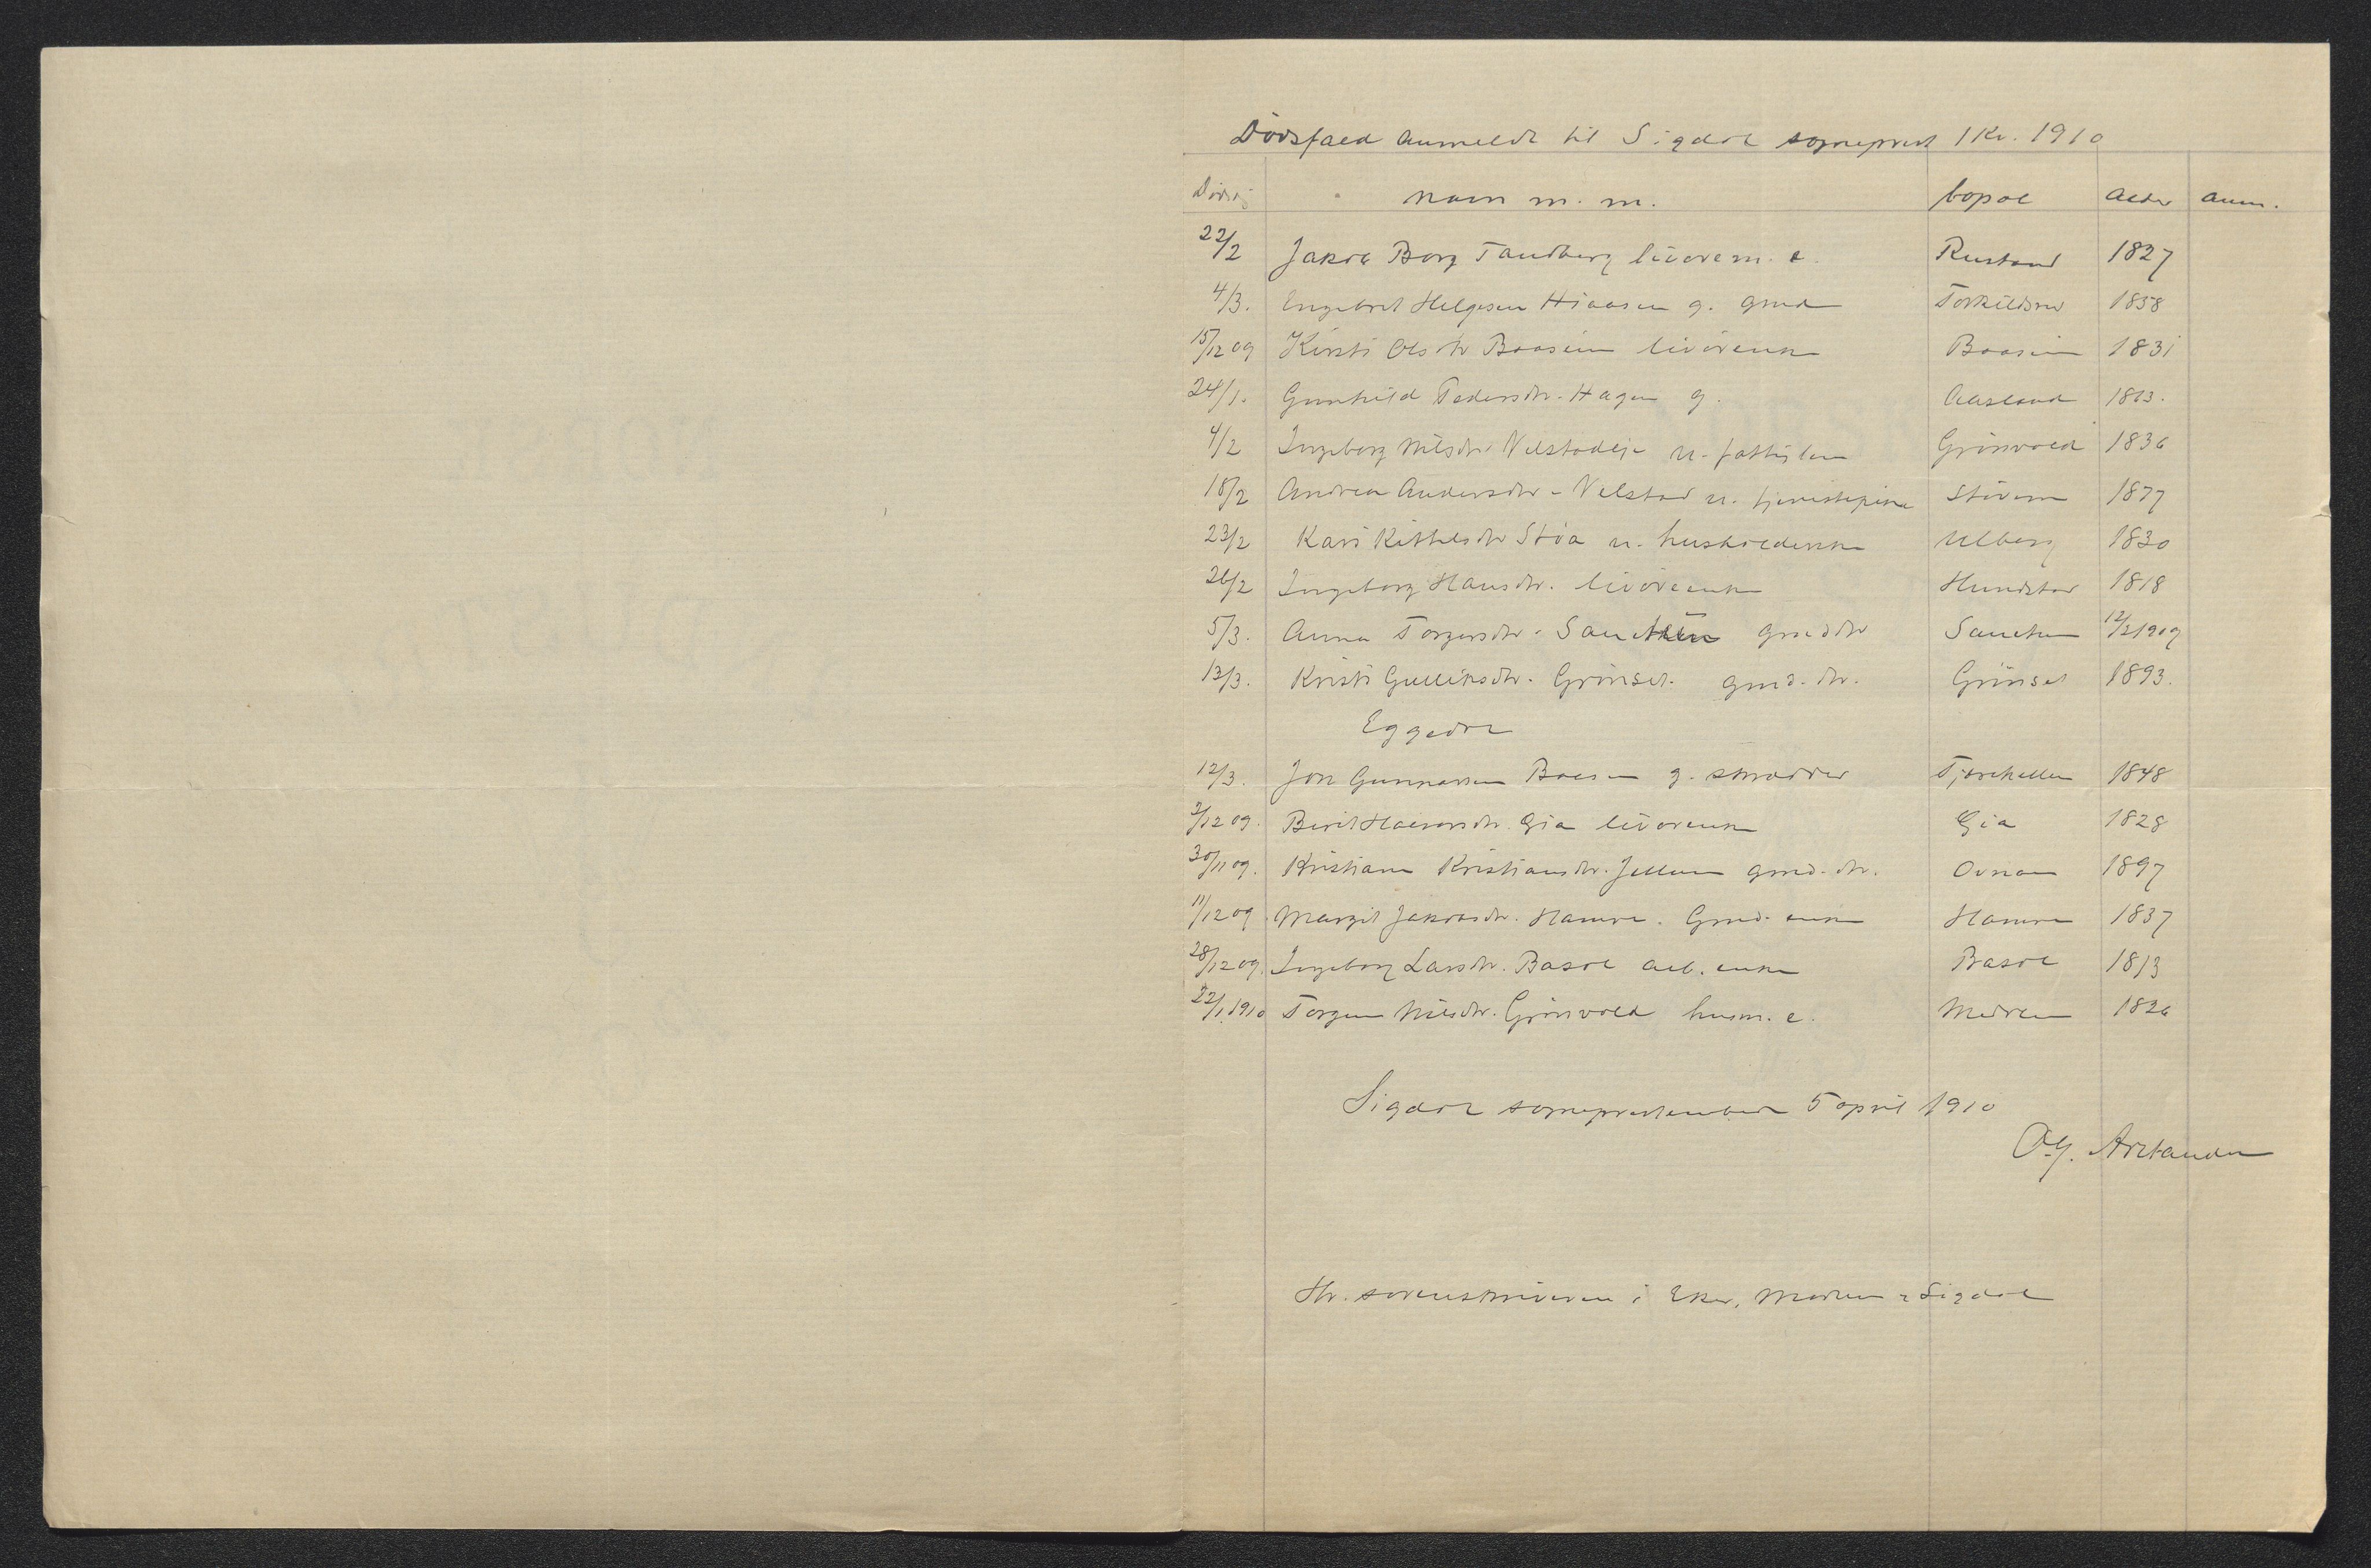 Dødsfald anmeldt til Sigdal sogneprest 1 Kv. 1910
Dødsdg navn m. m. bopæl alder anm.
22/2 Jakob Borg Tandberg livørem. e. Rustand 1827
4/3. Engebret Helgesen Hiaasen g. gmd Torkildsrud 1858
15/12 09 Kirsti Olsdtr Baasen livørenke Baasen 1831
24/1. Gunhild Pedersdtr. Hagen g. Aasland 1863.
4/2 Ingeborg Nilsdtr. Velstadeje u. fattiglem Grønvold 1836
18/2 Andrea Andersdtr. Velstad u. tjenestepike Støvern 1877
23/2 Kari Kittilsdtr Støa u. husholderske Ulberg 1830
26/2 Ingeborg Hansdtr. livørenke Hundstad 1818
5/3. Anna Torgersdtr. gmd dtr 12/2 1909
13/3. Kristi Gulliksdtr. Grønset. gmd. dtr. Grønset 1893.
Eggedal
12/3. Jon Gunnarsen g. skrædder 1848
3/12 09. Berit Halvorsdtr. Gia livørenke Gia 1828
30/11 09. Kristiane Kristiansdtr. Jellum gmd. dtr. 1897
11/12 09. Margit Jakobsdtr. Hamre. Gmd. enke Hamre 1837
28/12 09. Ingeborg Larsdtr. Basol arb. enke Basol 1813
22/1 1910 Torgun Nilsdtr. Grønvold husm. e. Medren 1826
Sigdal sogneprestembede 5 april 1910
Hr. sorenskriveren i Eker, Modum & Sigdal